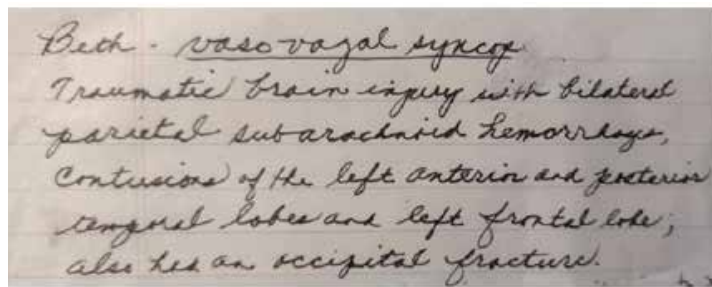 Beth - vasovagal syncop
Traumatic brain injury with bilateral
parietal subarachnoid hemorrhage,
Contusions of the left anterior and posterior
temporal lobes and left frontal lobe;
also has an occipital fracture.